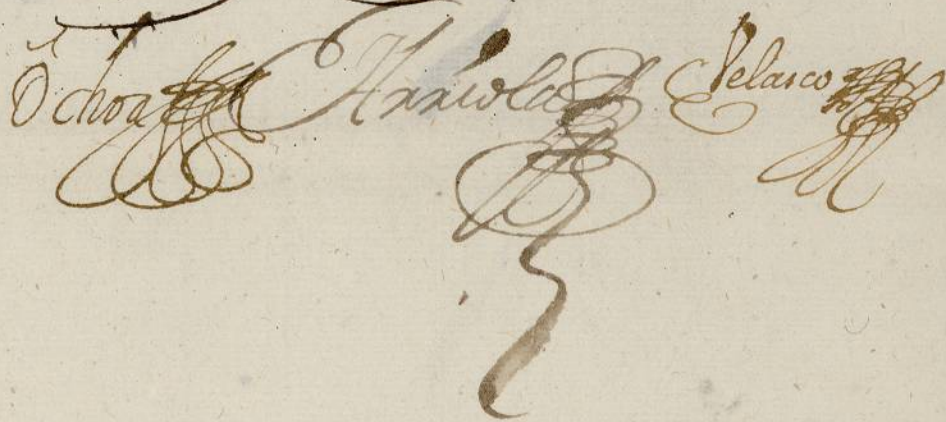 Ochoa Arriola Velasco